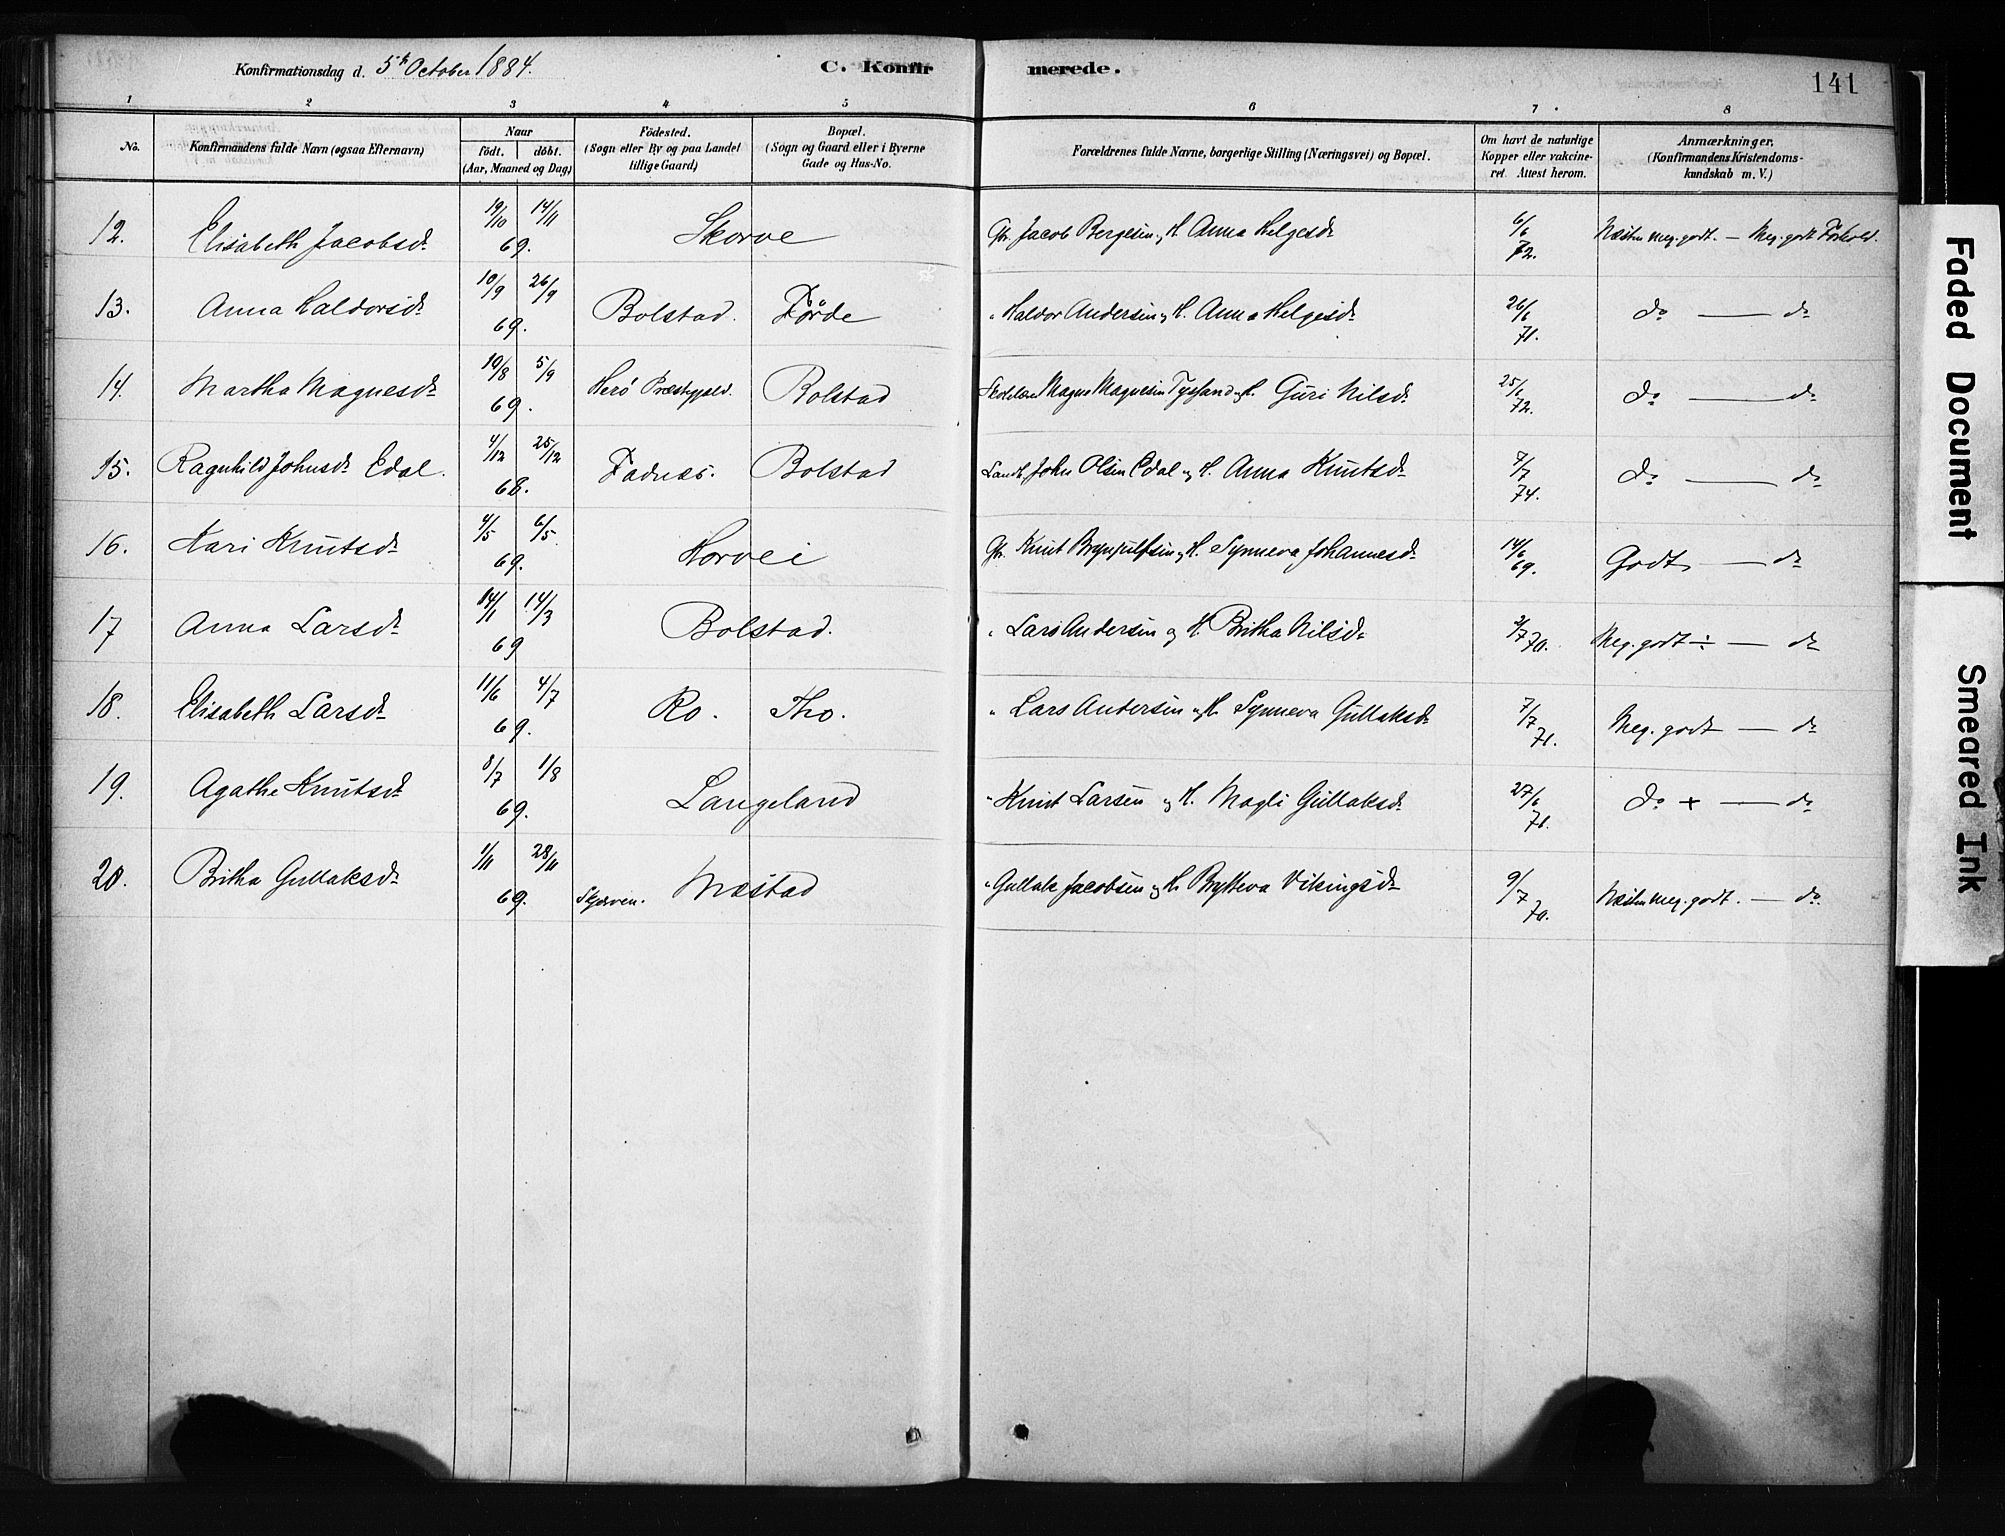 Konfirmationsdag d. 5te October 1884.
C. Konfirmerede.
141
1 2 3 4 5 6 7 8
No. Konfirmandens fulde Navn (ogsaa Efternavn) Naar født. døbt. (Aar, Maaned og Dag) Fødested. (Sogn eller By og paa Landet tillige Gaard) Bopæl. (Sogn og Gaard eller i Byerne Gade og Hus-No. Forældrenes fulde Navne, borgerlige Stilling (Næringsvei) og Bopæl. Om havt de naturlige Kopper eller vakcineret. Attest herom. Anmærkninger. (Konfirmandens Kristendomskundskab m. V.)
12. Elisabeth Jacobsdr 19/10 14/11 69. Skorve Gbr. Jacob Bergesen og H. Anna Helgesdr 6/6 72. Næsten meg. godt. — Meg. godt Forhold.
13. Anna Haldorsdr 10/9 26/9 69. Bolstad. Førde " Haldor Andersen og H. Anna Helgesdr 26/6 71. do — do
14. Martha Magnesdr 10/8 5/9 69. Herø Præstegjeld. Bolstad Magne Magnesen Tyssand og H. Guri Nilsdr 25/6 72. do — do
15. Ragnhild Johnsdr Edal. 4/12 25/12 68. Fadnæs. Bolstad Landh. John Olsen Edal og H. Anna Knutsdr 7/7 74. do — do
16. Kari Knutsdr 4/5 6/5 69. Horvei Gbr. Knut Brynjulfsen og H. Synneva Johannesdr 14/6 69. Godt — do
17 Anna Larsdr 14/1 14/3 69 Bolstad. " Lars Andersen og H. Britha Nilsdr 2/7 70. Meg. godt ÷ — do
18. Elisabeth Larsdr 11/6 4/7 69. Ro. Tho. " Lars Andersen og H. Synneva Gullaksdr 7/7 71. Meg. godt — do
19. Agathe Knutsdr 8/7 1/8 69. Langeland " Knut Larsen og H. Magli Gullaksdr 27/6 71. do + — do
20. Britha Gullaksdr 1/11 28/11 69. Skjerven. Mæstad " Gullak Jacobsen og H. Brytteva Vikingsdr 9/7 70. Næsten meg. godt. — do.
Faded Document
Smeared Ink